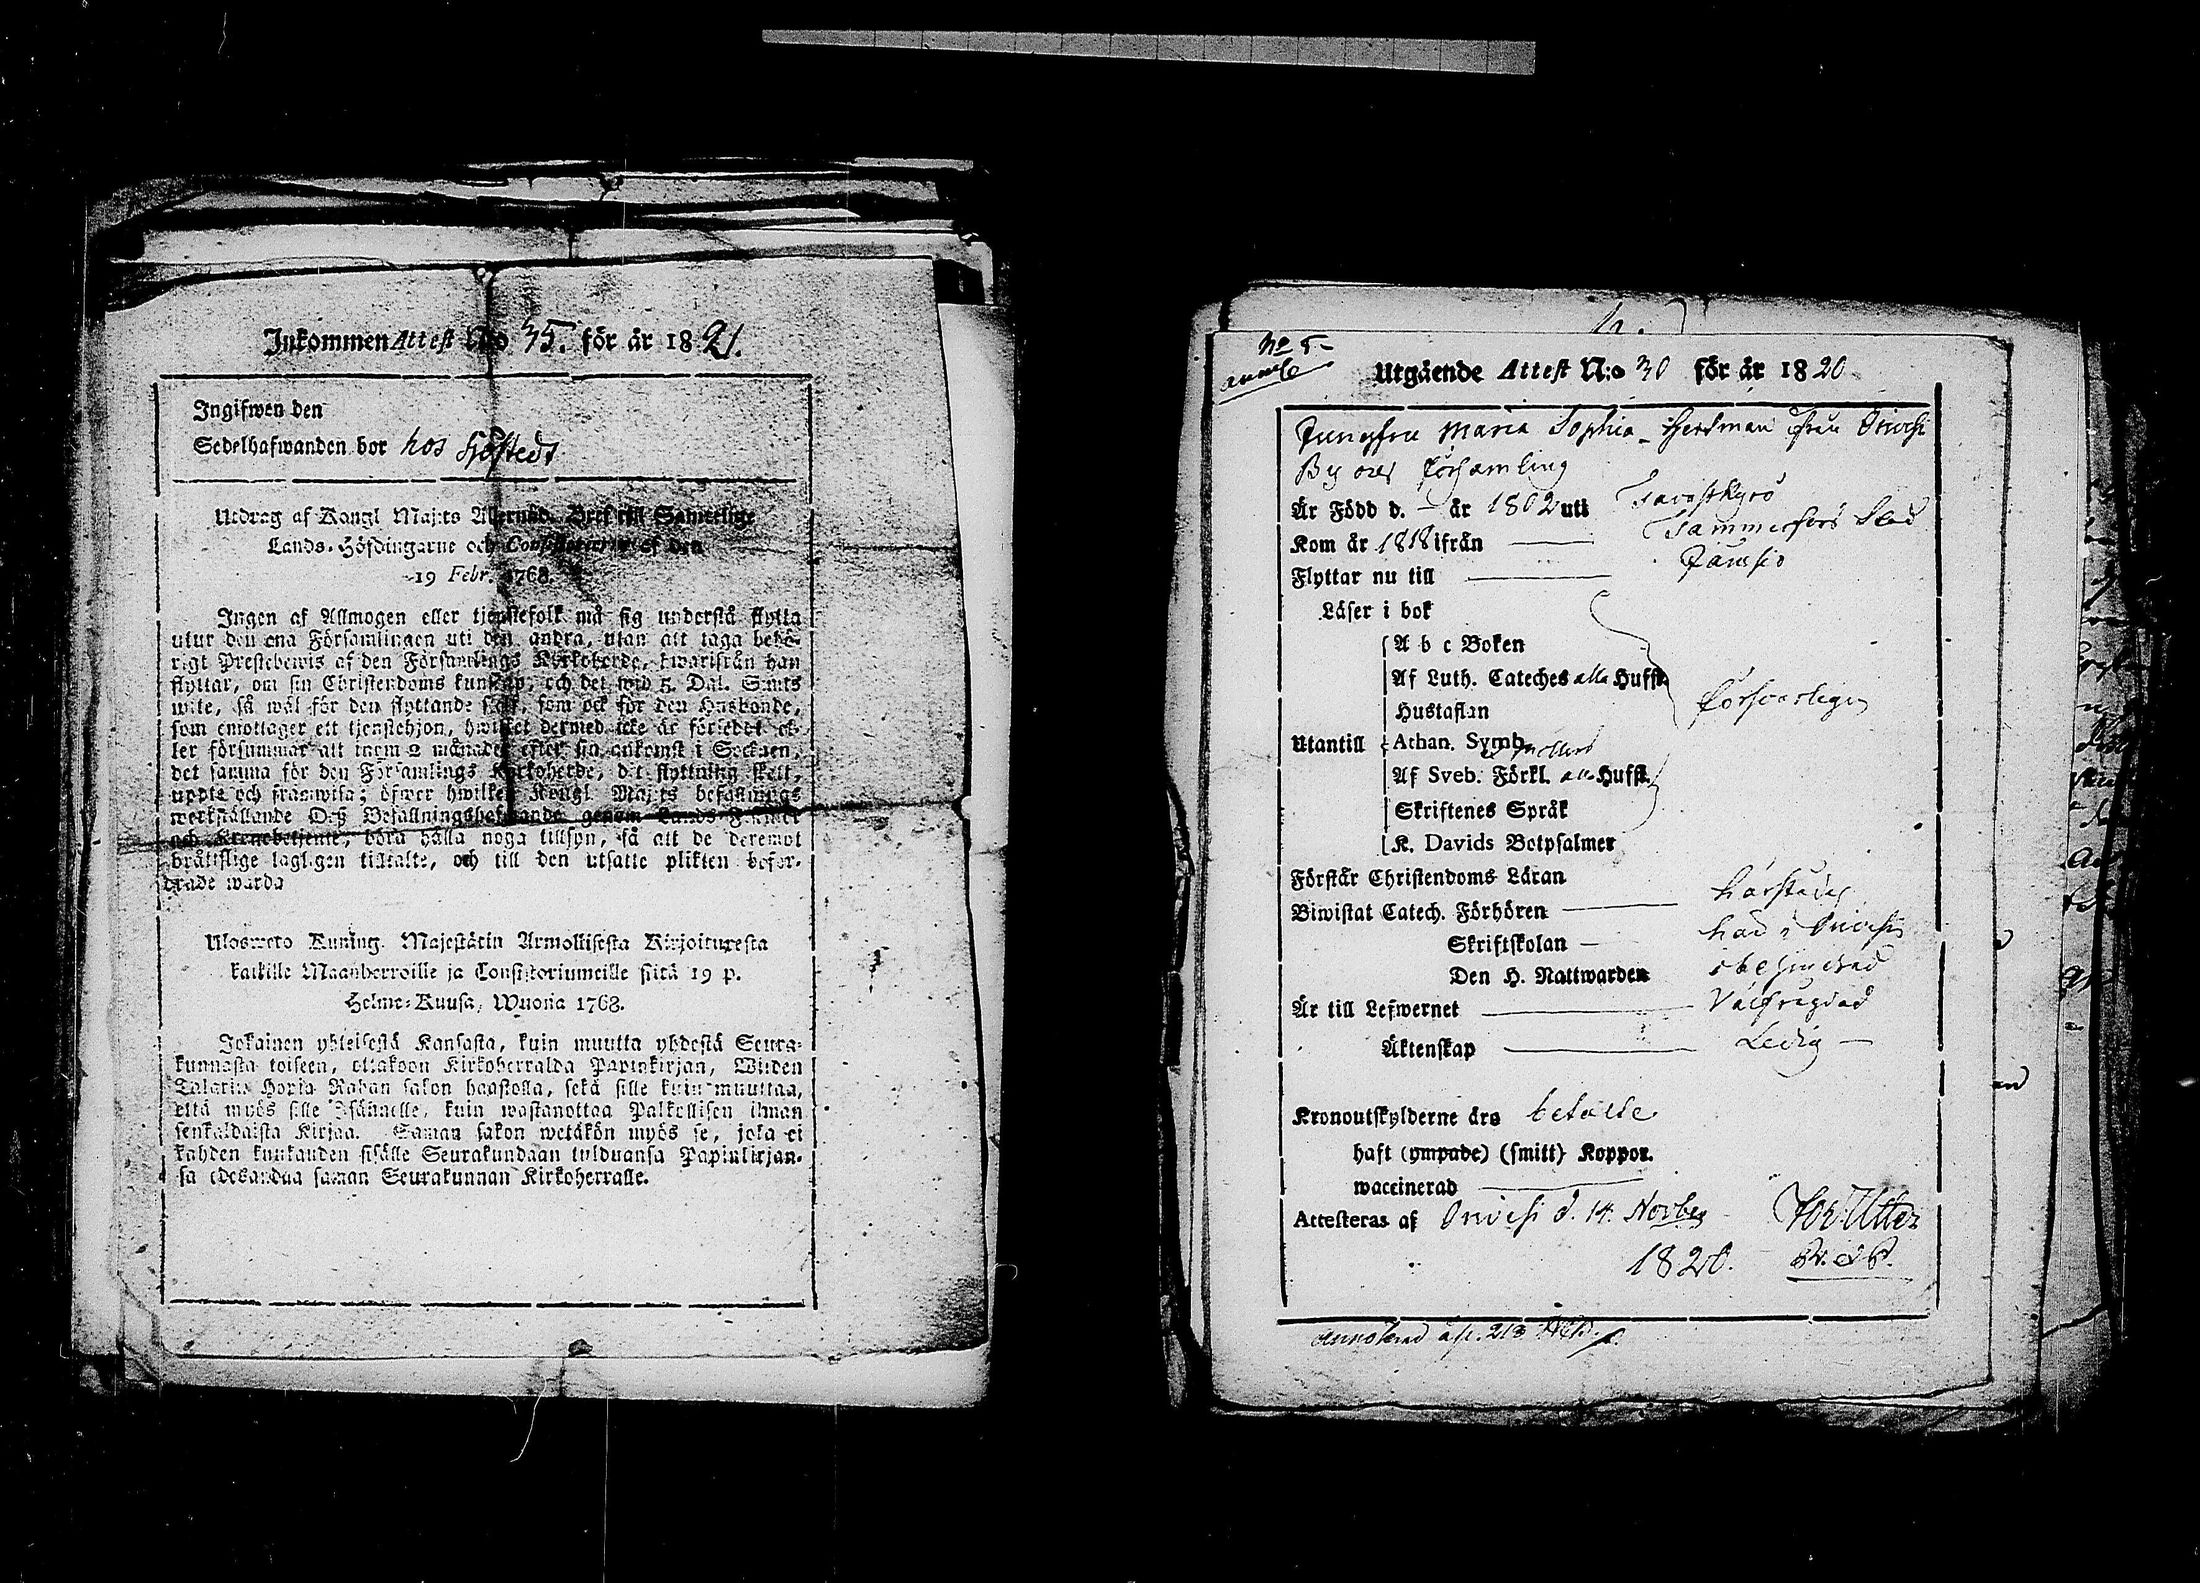 Inkommen Attest N:o 35. för år 1821.
Ingifwen den
Sedelhafwanden bor hos Sjöstedt
Utdrag af Kongl Maj:ts Allernåd. Bref till Samtelige
Lands-Höfdingarne och Consistorierne af den
19 Febr. 1768.
Ingen af Allmogen eller tjenstefolk må sig understå flytta
utur den ena Församlingen uti den andra, utan att taga behö-
rigt Prestebewis af den Församlings Kyrkoherde, hwarifrån han
flyttar, om sin Christendoms kunskap, och det wid 5. Dal. S:mts
wite, så wäl för den flyttande sjelf, som ock för den Husbonde,
som emottager ett tjenstehjon, hwilket dermed icke är försedt el-
ler försummar att inom 2 månader efter sin ankomst i Socknen,
det samma för den Församlings Kyrkoherde, dit flyttning skett,
uppte och framwisa; öfwer hwilket Kongl Maj:ts befallnings
werkställande Deß Befallningshafwande genom Lands-Fiskaler
och Kronobetjente, böra hålla noga tillsyn, så att de deremot
bråttslige lagligen tilltalte, och till den utsatte plikten befor-
drade warda
Ulosweto Kuning. Majestätin Armollisesta Kirjoituxesta
kaikille Maanherroille ja Consistoriumeille siitä 19 p.
Helme-Kuusa, Wuonna 1768.
Jokainen yhteisestä Kansasta, kuin muutta yhdestä Seura-
kunnasta toiseen, ottakoon Kirkoherralda Papinkirjan, Wiiden
Talarin Hopia Rahan sakon haastolla, sekä sille kuin muuttaa,
että myös sille Isännelle, kuin wastanottaa Palkollisen ilman
senkaldaista Kirjaa. Saman sakon wetäkön myös se, joka ei
kahden kuukauden sisälle Seurakundaan tulduansa Papinkirjan-
sa edesanna saman Seurakunnan Kirkoherralle.
No 5
Utgående Attest N:o 30 för år 1820
Jungfru Maria Sophia Herdman från Orivesi
By och församling
Är Född d. – år 1802 uti Tavastkyro
Kom år 1818 ifrån Tammerfors Stad
Flyttar nu till Jämsjö
Läser i bok
A b c Boken
Af Luth. Cateches alla Hufst.
Hustaflan försvarligen
Utantill Athan. Symb.
Af Sveb. Förkl. alla Hufst.
Skriftenes Språk
K. Davids Botpsalmer
Förstår Christendoms Läran
Biwistat Catech. Förhören
Skriftskolan
Den H. Nattwarden
Är till Lefwernet Välfrägdad
Äktenskap Ledig
Kronoutskylderne äro betalde
haft (ympade) (smitt) Koppor.
waccinerad
Attesteras af Orivesi d. 14 Novber
1820.